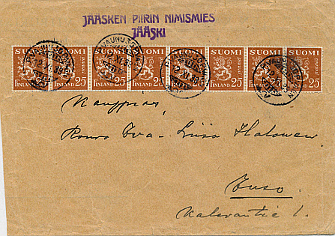 JÄÄSKEN PIIRIN NIMISMIES
JÄÄSKI
SUOMI SUOMI SUOMI SUOMI SUOMI SUOMI SUOMI SUOMI
FINLAND 25 FINLAND 25 FINLAND 25 FINLAND 25 FINLAND 25 FINLAND 25 FINLAND 25 FINLAND 25
Kauppias
Rouva Eva-Liisa Halonen
Enso
Kalevantie 1.